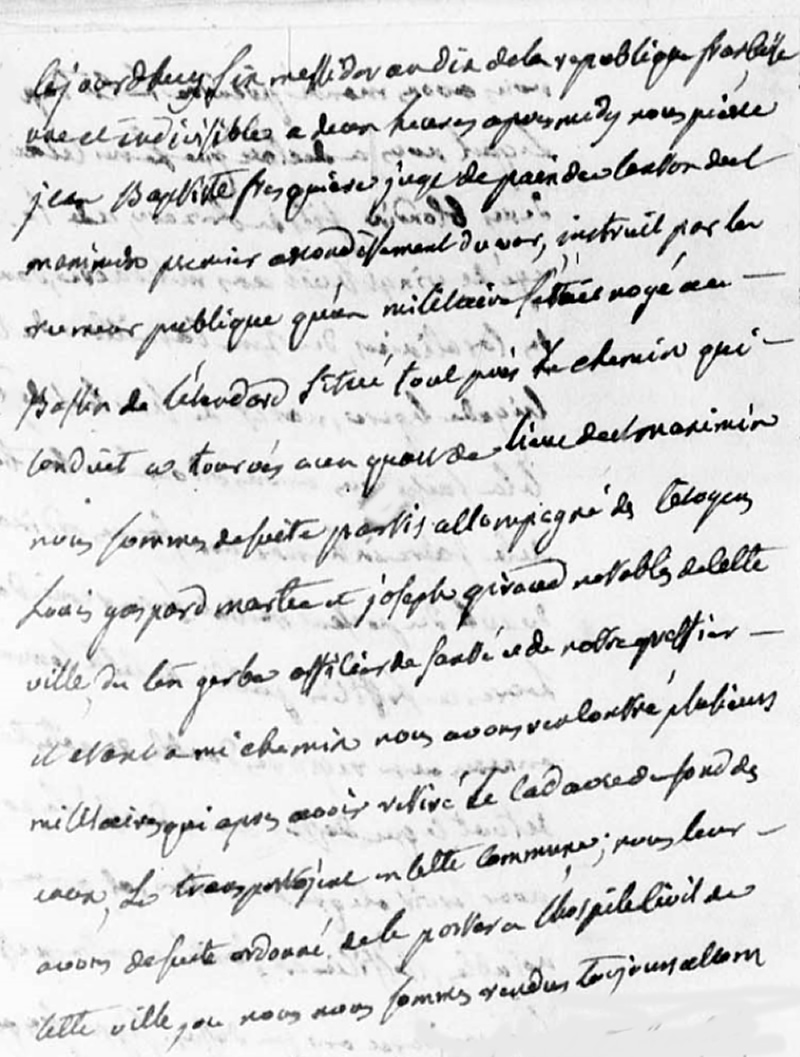 cejourdhuy six messidor an dix de la republique francaise
une et indivisible a deux heures apres midy nous pierre
jean Baptiste fresquiere juge de paix du canton de st
maximin premier arrondissement du var, instruit par la
rumeur publique qu'un militaire s'etait noyé au
Bassin de l'étendard situé tout près le chemin qui
conduit a tourves a un quart de lieue de st maximin
nous sommes de suite partis accompagné des citoyens
Louis gaspard martin et joseph giraud notables de cette
ville, du cen gerbe officier de santé et de notre greffier
et etant a mi chemin nous avons rencontré plusieurs
militaires qui apres avoir retiré le cadavre du fond des
eaux, le transportoient en cette commune; nous leur
avons de suite ordonné de le porter a l'hospice civil de
cette ville, ou nous nous sommes rendus toujours accom